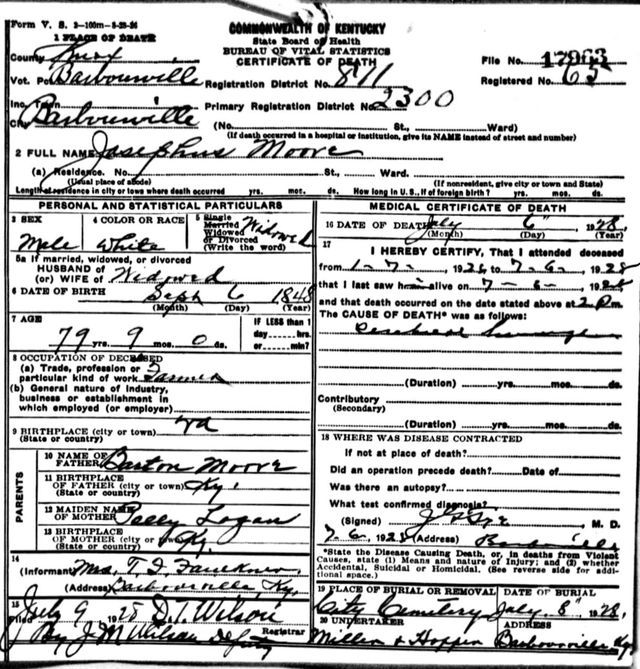 Form V. S. 2-100m-3-22-24
COMMONWEALTH OF KENTUCKY
State Board of Health
BUREAU OF VITAL STATISTICS
CERTIFICATE OF DEATH
1 PLACE OF DEATH
County Knox
File No. 17963
Vot. Pct. Barbourville
Registration District No. 811
Registered No. 65
Inc. Town
Primary Registration District No. 2300
City Barbourville (No. St., Ward)
(If death occurred in a hospital or institution, give its NAME instead of street and number)
2 FULL NAME Josephus Moore
(a) Residence. No. St., Ward.
(Usual place of abode) (If nonresident, give city or town and State)
Length of residence in city or town where death occurred yrs. mos. ds. How long in U. S., if of foreign birth? yrs. mos. ds.
PERSONAL AND STATISTICAL PARTICULARS
3 SEX Male
4 COLOR OR RACE White
5 Single Married Widowed or Divorced (Write the word) Widowed
5a If married, widowed, or divorced
HUSBAND of
(or) WIFE of Widowed
6 DATE OF BIRTH Sept 6 1848
(Month) (Day) (Year)
7 AGE 79 yrs. 9 mos. 0 ds.
IF LESS than 1 day----hrs. or----min?
8 OCCUPATION OF DECEASED
(a) Trade, profession or particular kind of work Farmer
(b) General nature of industry, business or establishment in which employed (or employer)
9 BIRTHPLACE (city or town)
(State or country)
PARENTS
10 NAME OF FATHER Barton Moore
11 BIRTHPLACE OF FATHER (city or town) Ky.
(State or country)
12 MAIDEN NAME OF MOTHER Sally Logan
13 BIRTHPLACE OF MOTHER (city or town) Ky.
(State or country)
14
(Informant) Mrs. T. J. Faulkner
(Address) Barbourville, Ky.
15 Filed July 9 1928 D.T. Wilson
By J M Wilson Deputy Registrar
MEDICAL CERTIFICATE OF DEATH
16 DATE OF DEATH July 6 1928.
(Month) (Day) (Year)
17 I HEREBY CERTIFY, That I attended deceased
from 1-7-, 1928 to 7-6-, 1928
that I last saw him alive on 7-6-, 1928
and that death occurred on the date stated above at 2 Pm.
The CAUSE OF DEATH* was as follows:
(Duration) yrs. mos. ds.
Contributory
(Secondary)
(Duration) yrs. mos. ds.
18 WHERE WAS DISEASE CONTRACTED
If not at place of death?
Did an operation precede death? Date of
Was there an autopsy?
What test confirmed diagnosis?
(Signed) M. D.
7-6, 1928 (Address) Barbourville
*State the Disease Causing Death, or, in deaths from Violent Causes, state (1) Means and nature of Injury; and (2) whether Accidental, Suicidal or Homicidal. (See reverse side for additional space.)
19 PLACE OF BURIAL OR REMOVAL City Cemetery
DATE OF BURIAL July 8" 1928.
20 UNDERTAKER Miller & Hoppin
ADDRESS Barbourville Ky.